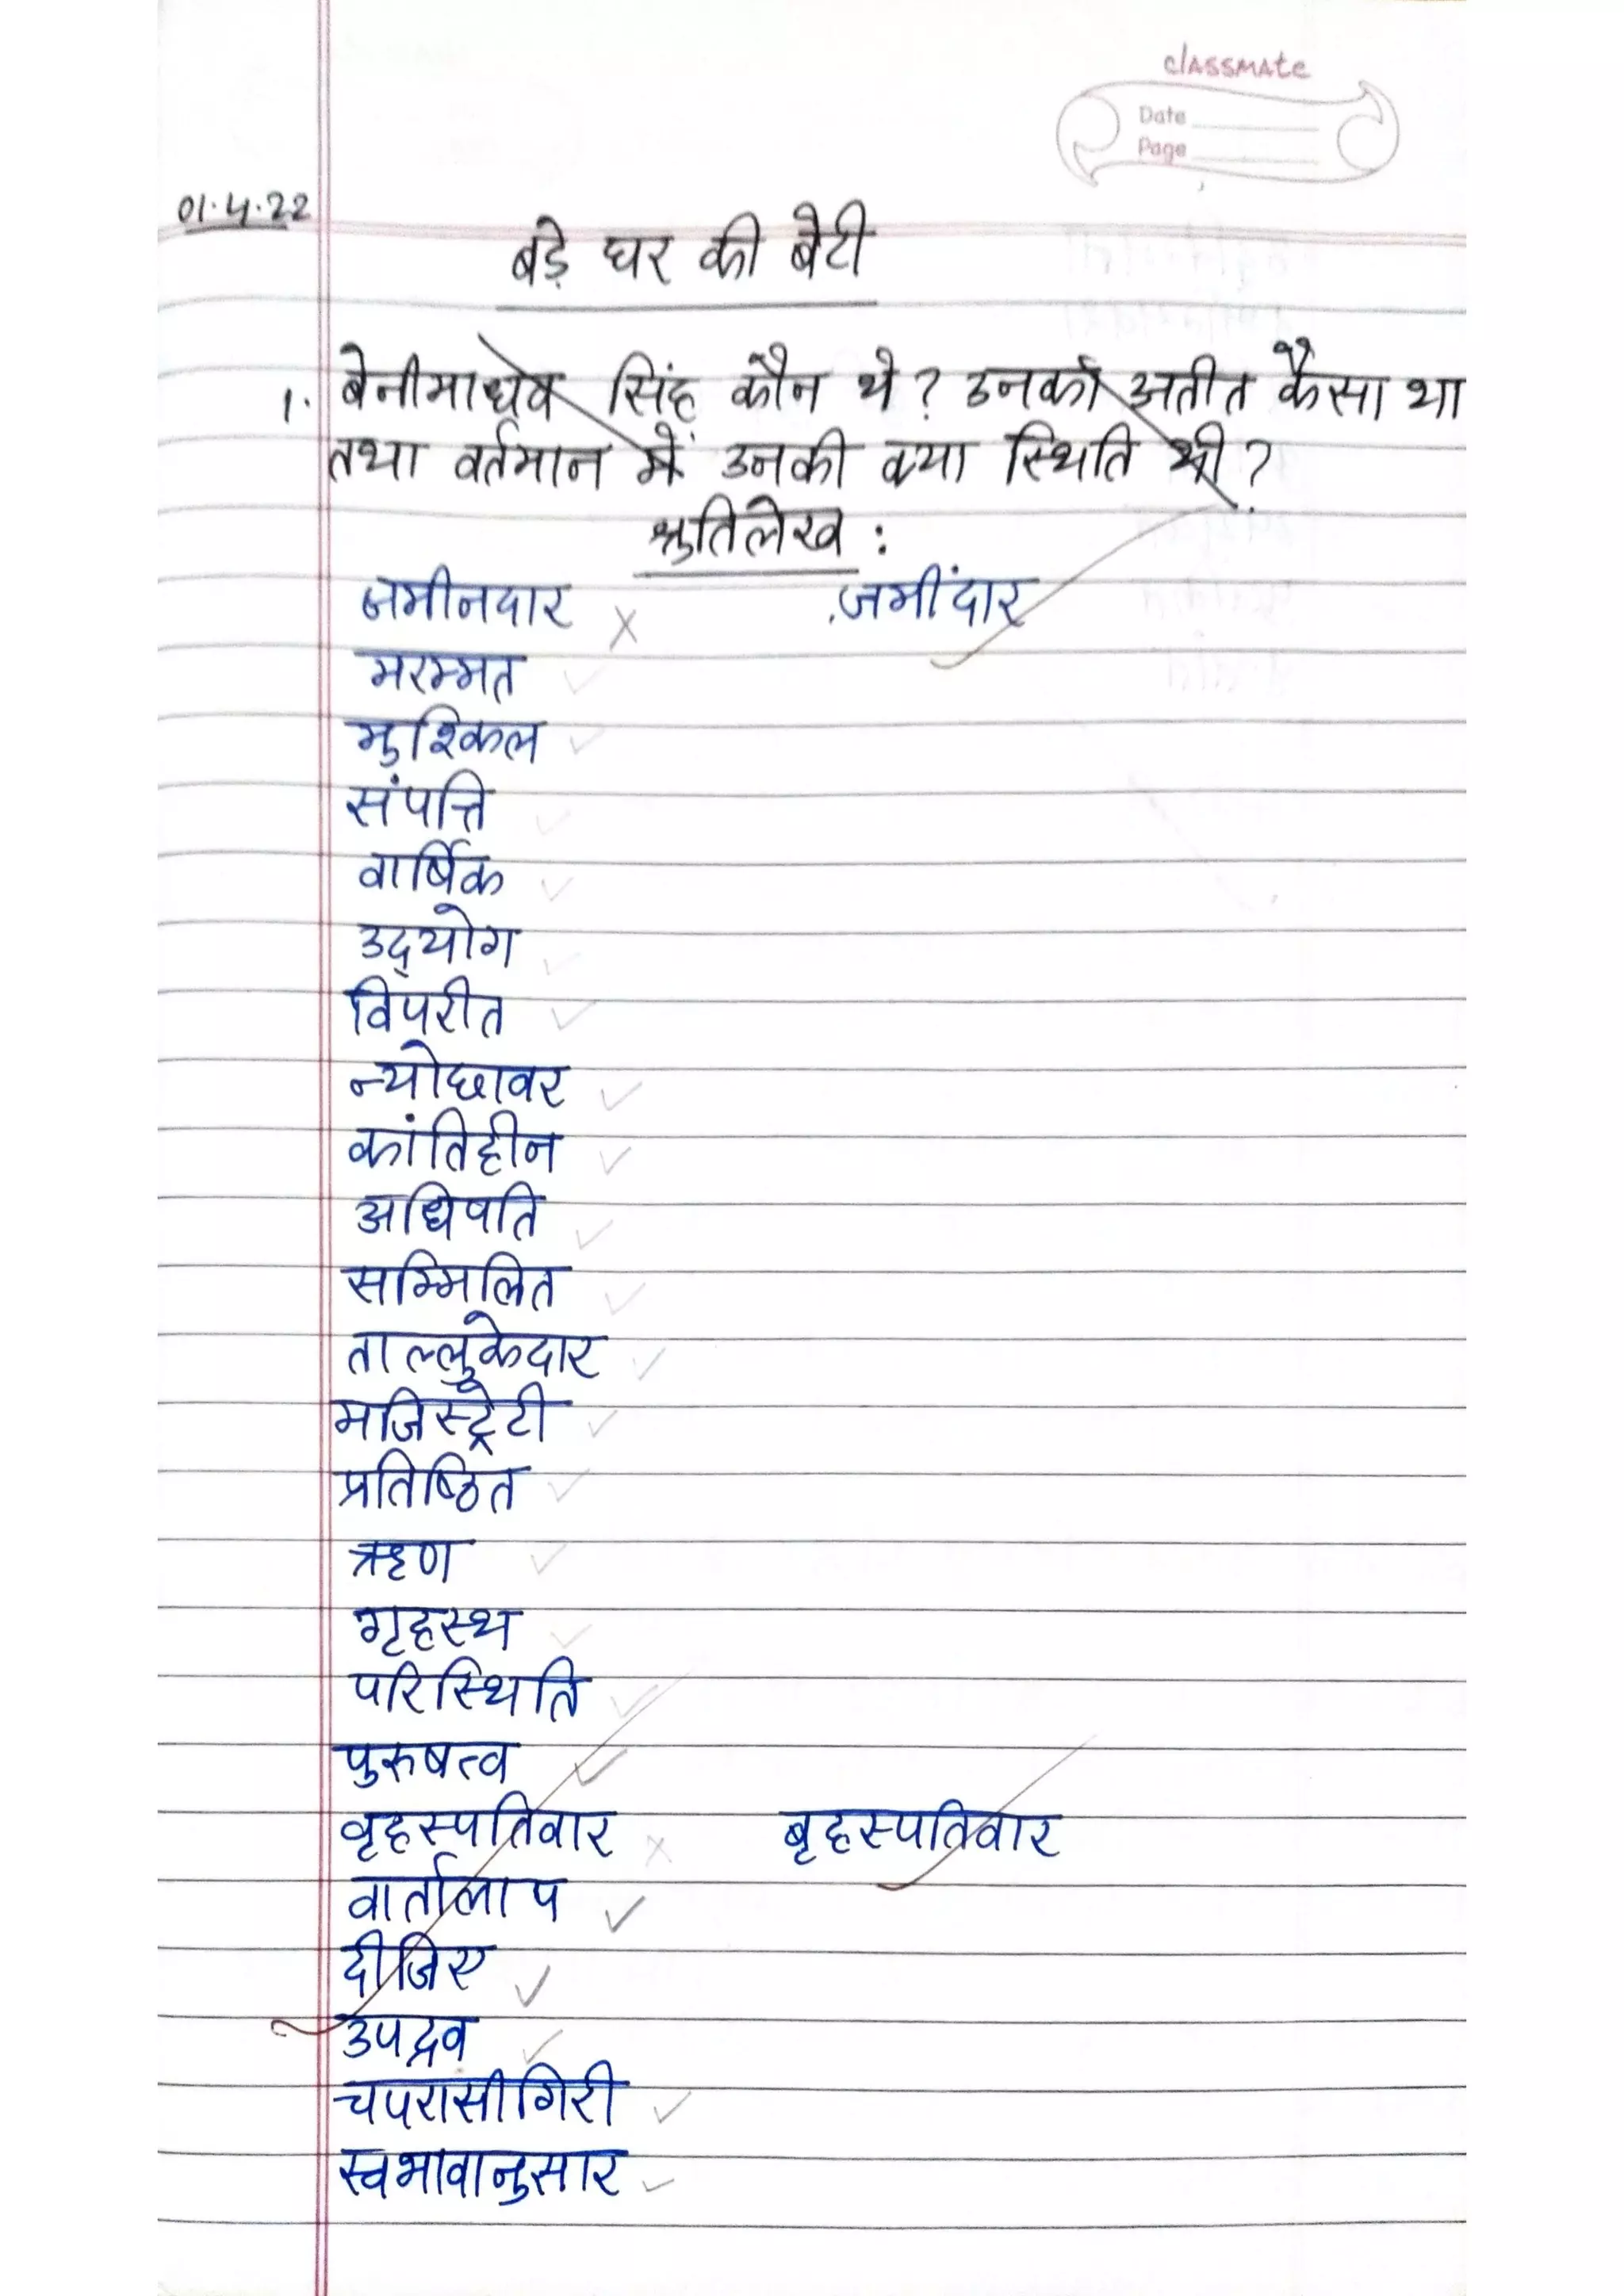 classmate
Date
Page
01.4.22
बड़े घर की बेटी
1. बेनीमाधव सिंह कौन थे? उनका अतीत कैसा था
तथा वर्तमान में उनकी क्या स्थिति थी?
श्रुतिलेख :
जमीनदार × ज़मींदार
मरम्मत ✓
मुश्किल ✓
संपत्ति ✓
वार्षिक ✓
उद्‌योग ✓
विपरीत ✓
न्योछावर ✓
कांतिहीन ✓
अधिपति ✓
सम्मिलित ✓
ताल्लुकेदार ✓
मजिस्ट्रेटी ✓
प्रतिष्ठित ✓
ऋण ✓
गृहस्थ ✓
परिस्थिति ✓
पुरुषत्व ✓
वृहस्पतिवार × बृहस्पतिवार
वार्तालाप ✓
दीजिए ✓
उपद्रव ✓
चपरासीगिरी ✓
स्वभावानुसार ✓